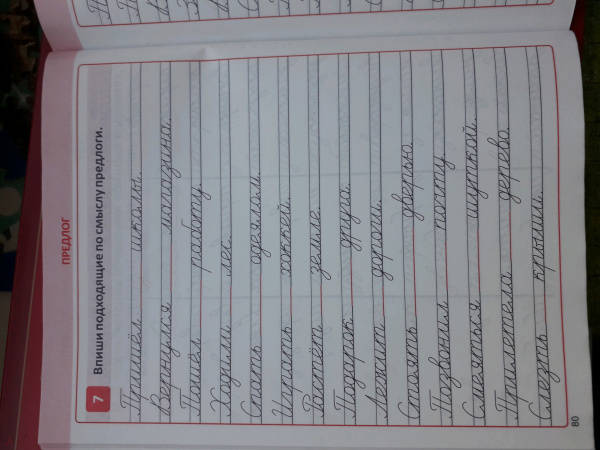 ПРЕДЛОГ
7 Впиши подходящие по смыслу предлоги.
Пришёл школы.
Вернулся магазина.
Пошёл работу.
Ходили лес.
Спать одеялом.
Играть хоккей.
Растёт земле.
Подарок друга.
Лежит дороги.
Стоять дверью.
Позвонил почту.
Смеяться шуткой.
Прилетели дерево.
Слезть крыши.
80